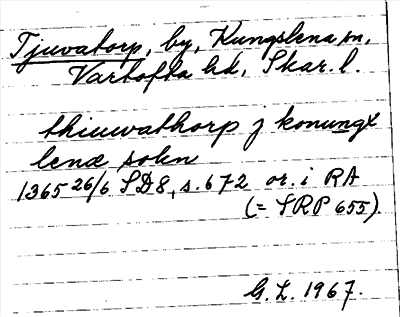 Tjuvatorp, by, Kungslena sn,
Vartofta hd, Skar. l.
thiuwathorp j konungx
lenæ sokn
1365 26/6 SD8, s.672 or. i RA
(= SRP 655).
G. L. 1967.